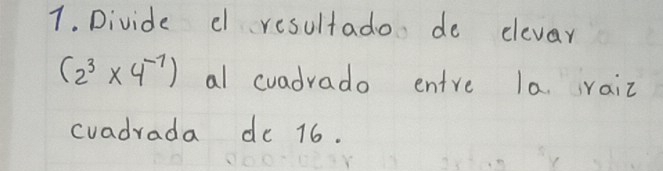 1. Divide el resultado de elevar
(2³ x 4⁻¹) al cuadrado entre la raiz
cuadrada de 16.